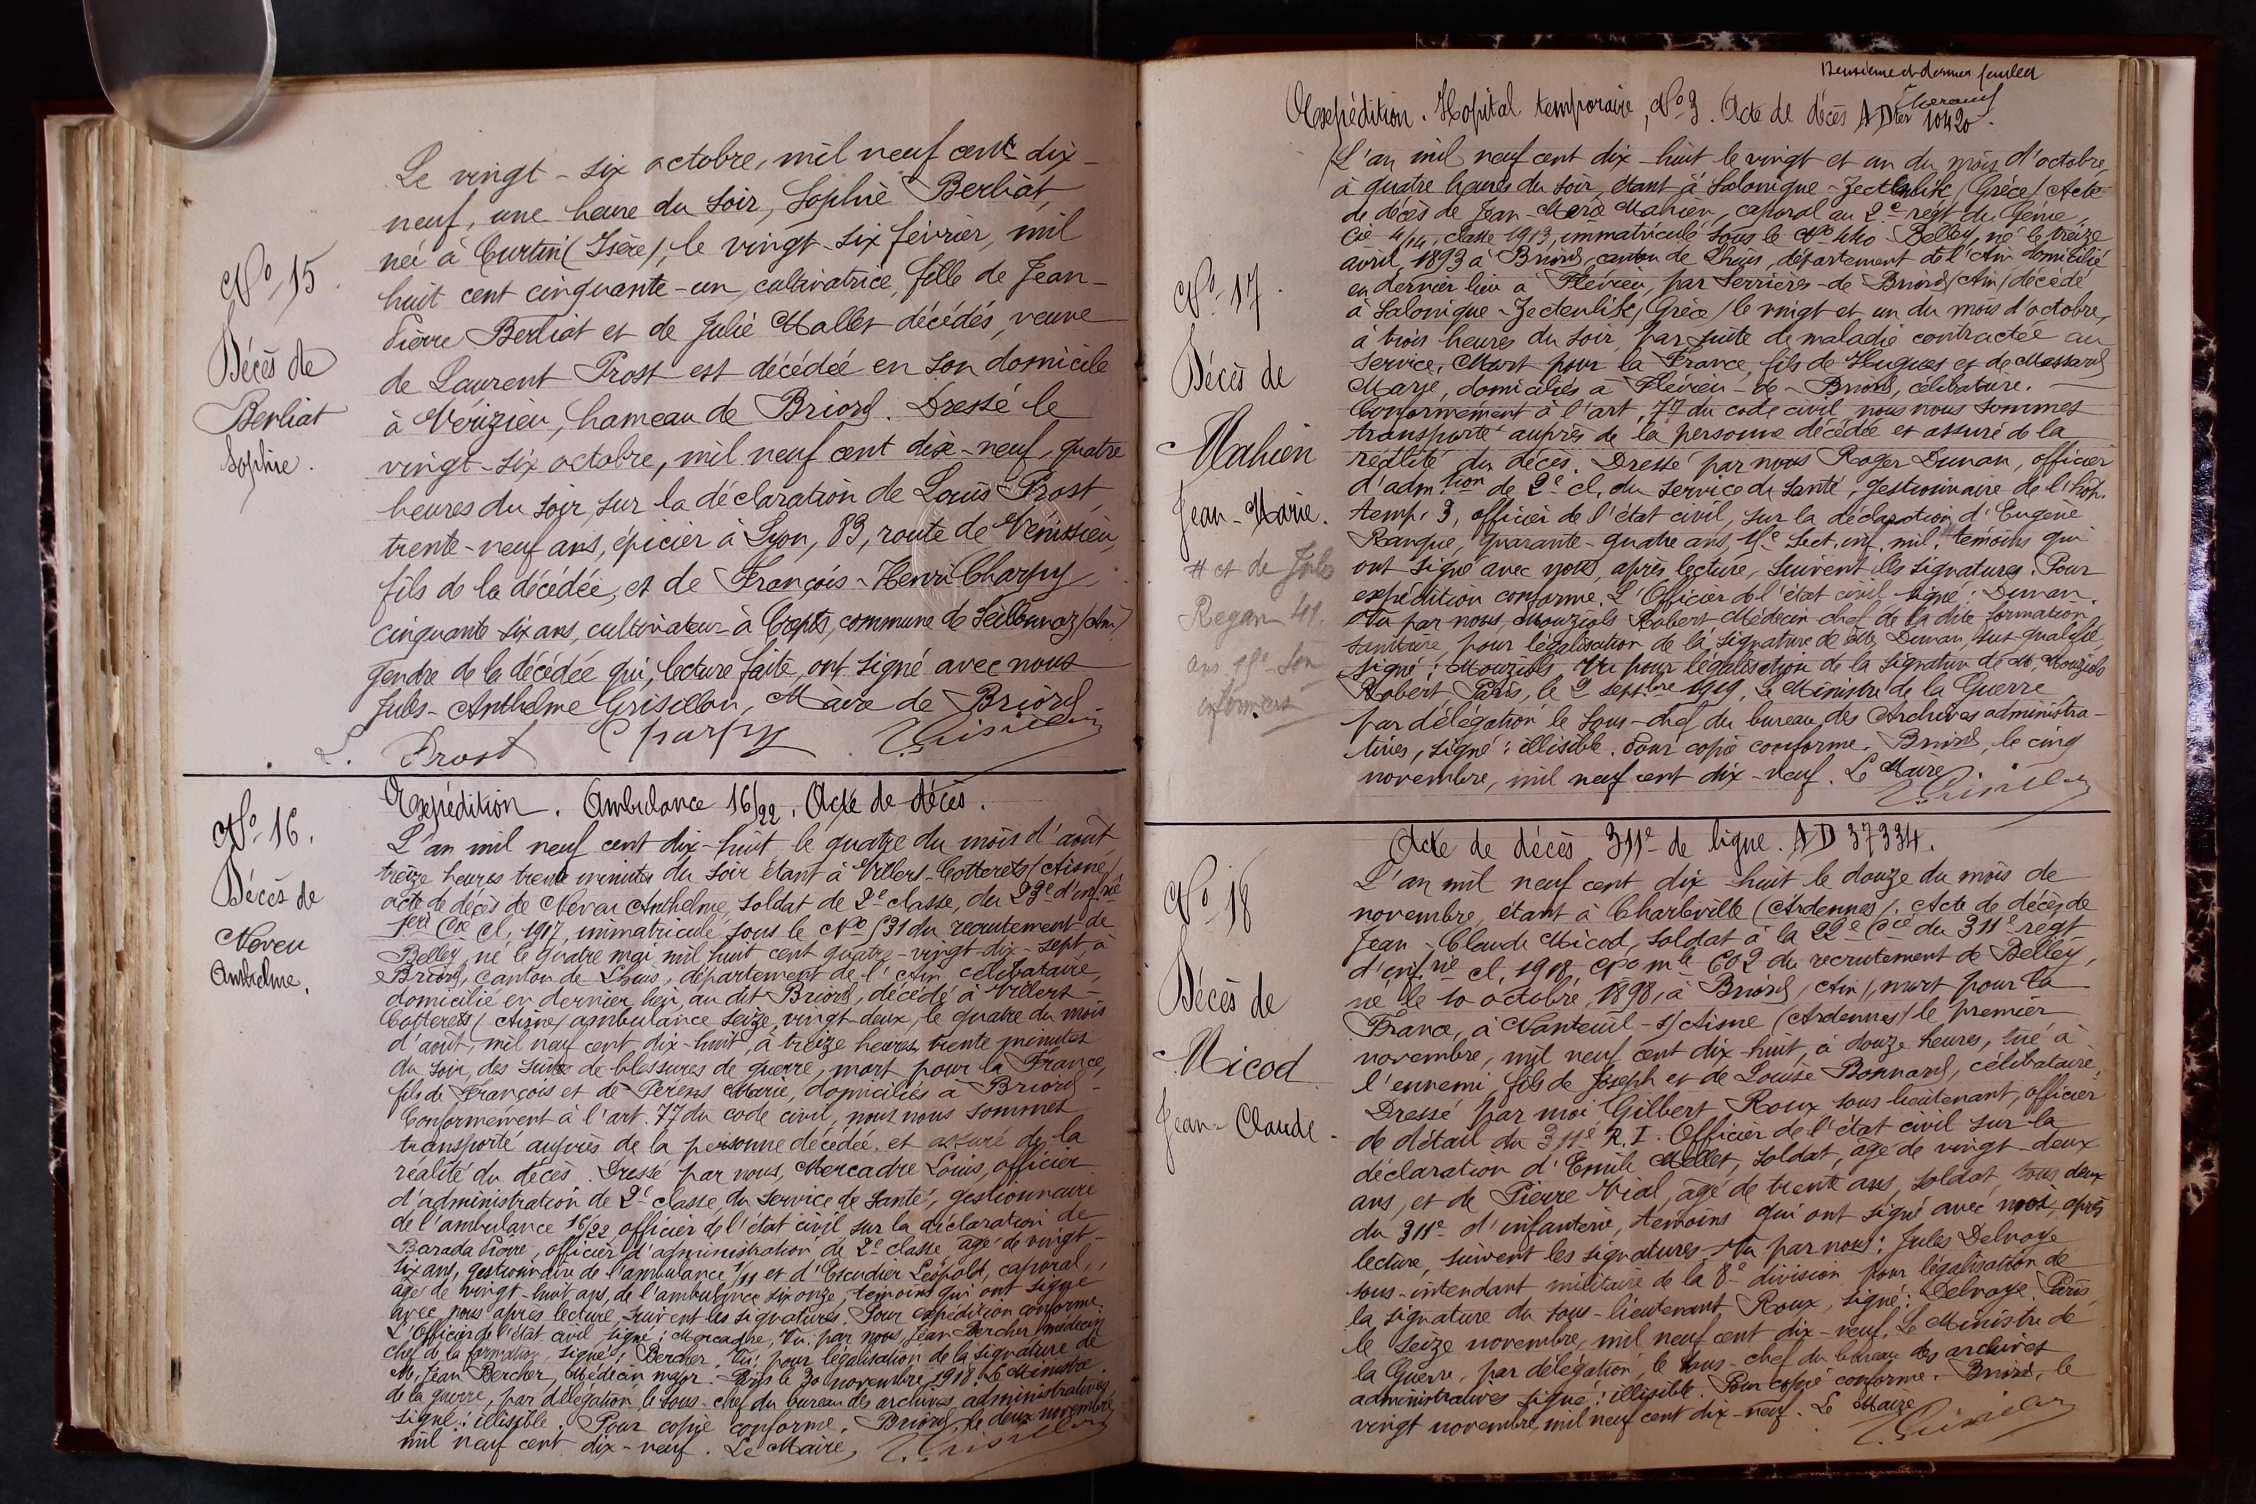 Le vingt-six octobre, mil neuf cent dix-
neuf, une heure du soir, Sophie Berliat,
née à Curtin (Isère), le vingt-six février, mil
huit cent cinquante-un, cultivatrice, fille de Jean-
Pierre Berliat et de Julie Mallet décédés, veuve
de Laurent Prost est décédée en son domicile
à Vérizieu, hameau de Briord. Dressé le
vingt-six octobre, mil neuf cent dix-neuf, quatre
heures du soir, sur la déclaration de Louis Prost,
trente-neuf ans, épicier à Lyon, 83, route de Vénissieu,
fils de la décédée, et de François-Henri Charpy
cinquante six ans, cultivateur à Crept, commune de Seillonnaz (Ain)
gendre de la décédée qui, lecture faite, ont signé avec nous
Jules-Anthelme Grisillon, Maire de Briord
L. Prost Charpy Grisillon
No 15.
Décès de
Berliat
Sophie.
Expédition. Ambulance 16/22. Acte de décès.
No 16.
Décès de
Neveu
Anthelme.
L'an mil neuf cent dix-huit le quatre du mois d'août
treize heures trente minutes du soir étant à Villers-Cotterets (Aisne)
acte de décès de Neveu Anthelme, soldat de 2e classe, du 23e d'inf.rie
1ère Cie cl. 1917, immatriculé sous le No 531 du recrutement de
Belley, né le quatre mai, mil huit cent quatre-vingt-dix-sept à
Briord, canton de Lhuis, département de l'Ain célibataire,
domicilié en dernier lieu, au dit Briord, décédé à Villers-
Cotterets (Aisne) ambulance seize, vingt-deux, le quatre du mois
d'août, mil neuf cent dix-huit, à treize heures trente minutes
du soir, des suites de blessures de guerre, mort pour la France,
fils de François et de Perens Marie, domiciliés à Briord-
Conformément à l'art. 77 du code civil, nous nous sommes
transporté auprès de la personne décédée et assuré de la
réalité du décès. Dressé par nous, Mercadre Louis, officier
d'administration de 2e classe, du service de santé, gestionnaire
de l'ambulance 16/22 officier de l'état civil sur la déclaration de
Barada Pierre, officier d'administration de 2e classe âgé de vingt-
six ans, gestionnaire de l'ambulance 1/11 et d'Escudier Léopold, caporal,
âgé de vingt-huit ans, de l'ambulance six onze, témoins qui ont signé
avec nous après lecture, suivent les signatures. Pour expédition conforme.
L'Officier de l'état civil signé : Mercadre. Vu par nous, Jean Bercher, médecin
chef de la formation, signé : Bercher. Vu : pour légalisation de la signature de
M. Jean Bercher, Médecin major. Paris le 30 novembre 1918. Le Ministre
de la guerre, par délégation, le sous-chef du bureau des archives administratives
signé : illisible. Pour copie conforme. Briord, le deux novembre
mil neuf cent dix-neuf. Le Maire, Grisillon
Deuxième et dernier feuillet
Expédition. Hopital temporaire, No 3. Acte de décès AD ter 10420.
No 17.
Décès de
Mahien
Jean-Marie.
# et de Jules
Regan 41.
ans 15e Son
infirmiers
L'an mil neuf cent dix-huit le vingt et un du mois d'octobre,
à quatre heures du soir, étant à Salonique-Zeitenlik (Grèce) Acte
de décès de Jean-Marie Mahien, caporal au 2e régt du Génie,
Cie 4/14, classe 1913, immatriculé sous le No 440 Belley, né le treize
avril 1893 à Briord, canton de Lhuis, département de l'Ain domicilié
en dernier lieu à Flévieu, par Serrières-de Briord (Ain) décédé
à Salonique-Zeitenlik (Grèce) le vingt et un du mois d'octobre,
à trois heures du soir, par suite de maladie contractée au
service, Mort pour la France, fils de Hugues et de Massard
Marie, domiciliés à Flévieu-de-Briord, célibataire.
Conformément à l'art. 77 du code civil, nous nous sommes
transporté auprès de la personne décédée et assuré de la
réalité du décès. Dressé par nous Roger Dunan, officier
d'adm.tion de 2e cl. du service de santé, gestionnaire de l'hôp.
temp. 3, officier de l'état civil, sur la déclaration d'Eugène
Ranque, quarante-quatre ans, 15e sect. inf. mil. # témoins qui
ont signé avec nous, après lecture, suivent les signatures. Pour
expédition conforme. L'Officier de l'état civil signé : Dunan.
Vu par nous Mouziols Robert Médecin chef de la dite formation
sanitaire, pour légalisation de la signature de M. Dunan, sus-qualifié
signé : Mouziols. Vu pour légalisation de la signature de M. Mouziols
Robert Paris, le 2 septbre 1919, Le Ministre de la Guerre
par délégation le sous-chef du bureau des Archives administra-
tives, signé : illisible. Pour copie conforme. Briord, le cinq
novembre, mil neuf cent dix-neuf. Le Maire Grisillon
Acte de décès 311e de ligne. AD 37334.
No 18
Décès de
Micod
Jean-Claude.
L'an mil neuf cent dix huit le douze du mois de
novembre, étant à Charleville (Ardennes). Acte de décès de
Jean-Claude Micod, soldat à la 22e Cie du 311e régt
d'inf.rie cl. 1918, No mle 602 du recrutement de Belley,
né le 10 octobre 1898, à Briord, (Ain), mort pour la
France, à Nanteuil-s/Aisne (Ardennes) le premier
novembre, mil neuf cent dix-huit, à douze heures, tué à
l'ennemi, fils de Joseph et de Louise Bonnard, célibataire.
Dressé par moi Gilbert Roux sous lieutenant, officier
de détail du 311e R.I. Officier de l'état civil sur la
déclaration d'Emile Mellet, soldat, âgé de vingt-deux
ans, et de Pierre Vial, âgé de trente ans, soldat, tous deux
du 311e d'infanterie, témoins qui ont signé avec moi, après
lecture, suivent les signatures. Vu par nous : Jules Delvoye
sous-intendant militaire de la 8e division pour légalisation de
la signature du sous-lieutenant Roux, signé : Delvoye. Paris,
le seize novembre, mil neuf cent dix-neuf. Le Ministre de
la Guerre, par délégation, le sous-chef du bureau des archives
administratives signé : illisible. Pour copie conforme. Briord, le
vingt novembre, mil neuf cent dix-neuf. Le Maire
Grisillon